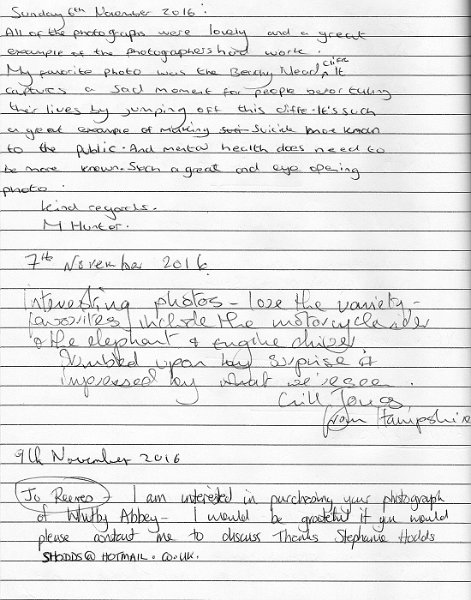 Sunday 6th November 2016:
All of the photographs were lovely and a great
example of the photographers hard work.
My favorite photo was the Beachy Head cliffs. It
captures a sad moment for people before taking
their lives by jumping off this cliffs. It's such
a great example of making Suicide more known
to the public. And mental health does need to
be more known. Such a great and eye opening
photo.
kind regards.
M Hunter.
7th November 2016
Interesting photos - love the variety -
favourites include the motorcycle rider
& the elephant & engine driver.
Stumbled upon by surprise &
impressed by what we've seen.
from Hampshire
9th November 2016
Jo Reeves - I am interested in purchasing your photograph
of Whitby Abbey - I would be grateful if you would
please contact me to discuss Thanks Stephanie Hodds
SHODDS@HOTMAIL.CO.UK.